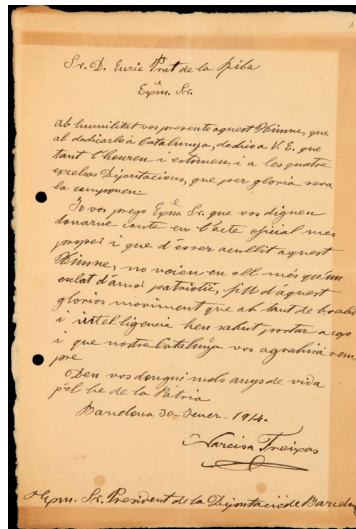 Sr. D. Enric Prat de la Riba
Exm. Sr.
Ab humilitat vos presento aquest Himne, que
al dedicarlo a Catalunya, dedico a V. E. que
tant l'honreu i estimeu, i a les quatre
excelses Diputacions, que per gloria seva
la componen.
Jo vos prego Exm. Sr. que vos digneu
donarne conte en l'acte oficial mes
proper i que d'ésser acullit aquest
Himne, no veieu en ell més qu'un
esclat d'amor patriotic, fill d'aquest
glorios moviment que ab tant de
i intel·ligencia heu sabut portar a cap
i que nostra Catalunya vos agrahirá sem
pre
Deu vos dongui molts anys de vida
p'el be de la Patria
Barcelona 30 - Jener - 1914.
Narcisa Freixas
Exm. Sr. President de la Diputació de Barcelona